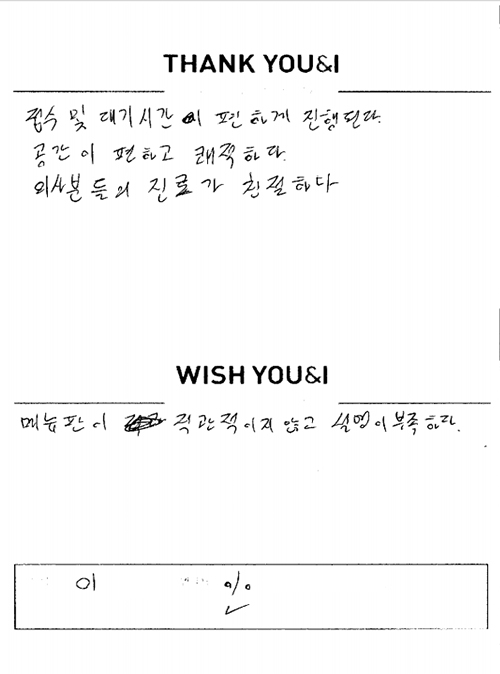 THANK YOU&I
접수 및 대기시간이 편하게 진행된다.
공간이 편하고 쾌적하다.
의사분들의 진료가 친절하다
WISH YOU&I
메뉴판이 직관적이지 않고 설명이 부족하다.
이